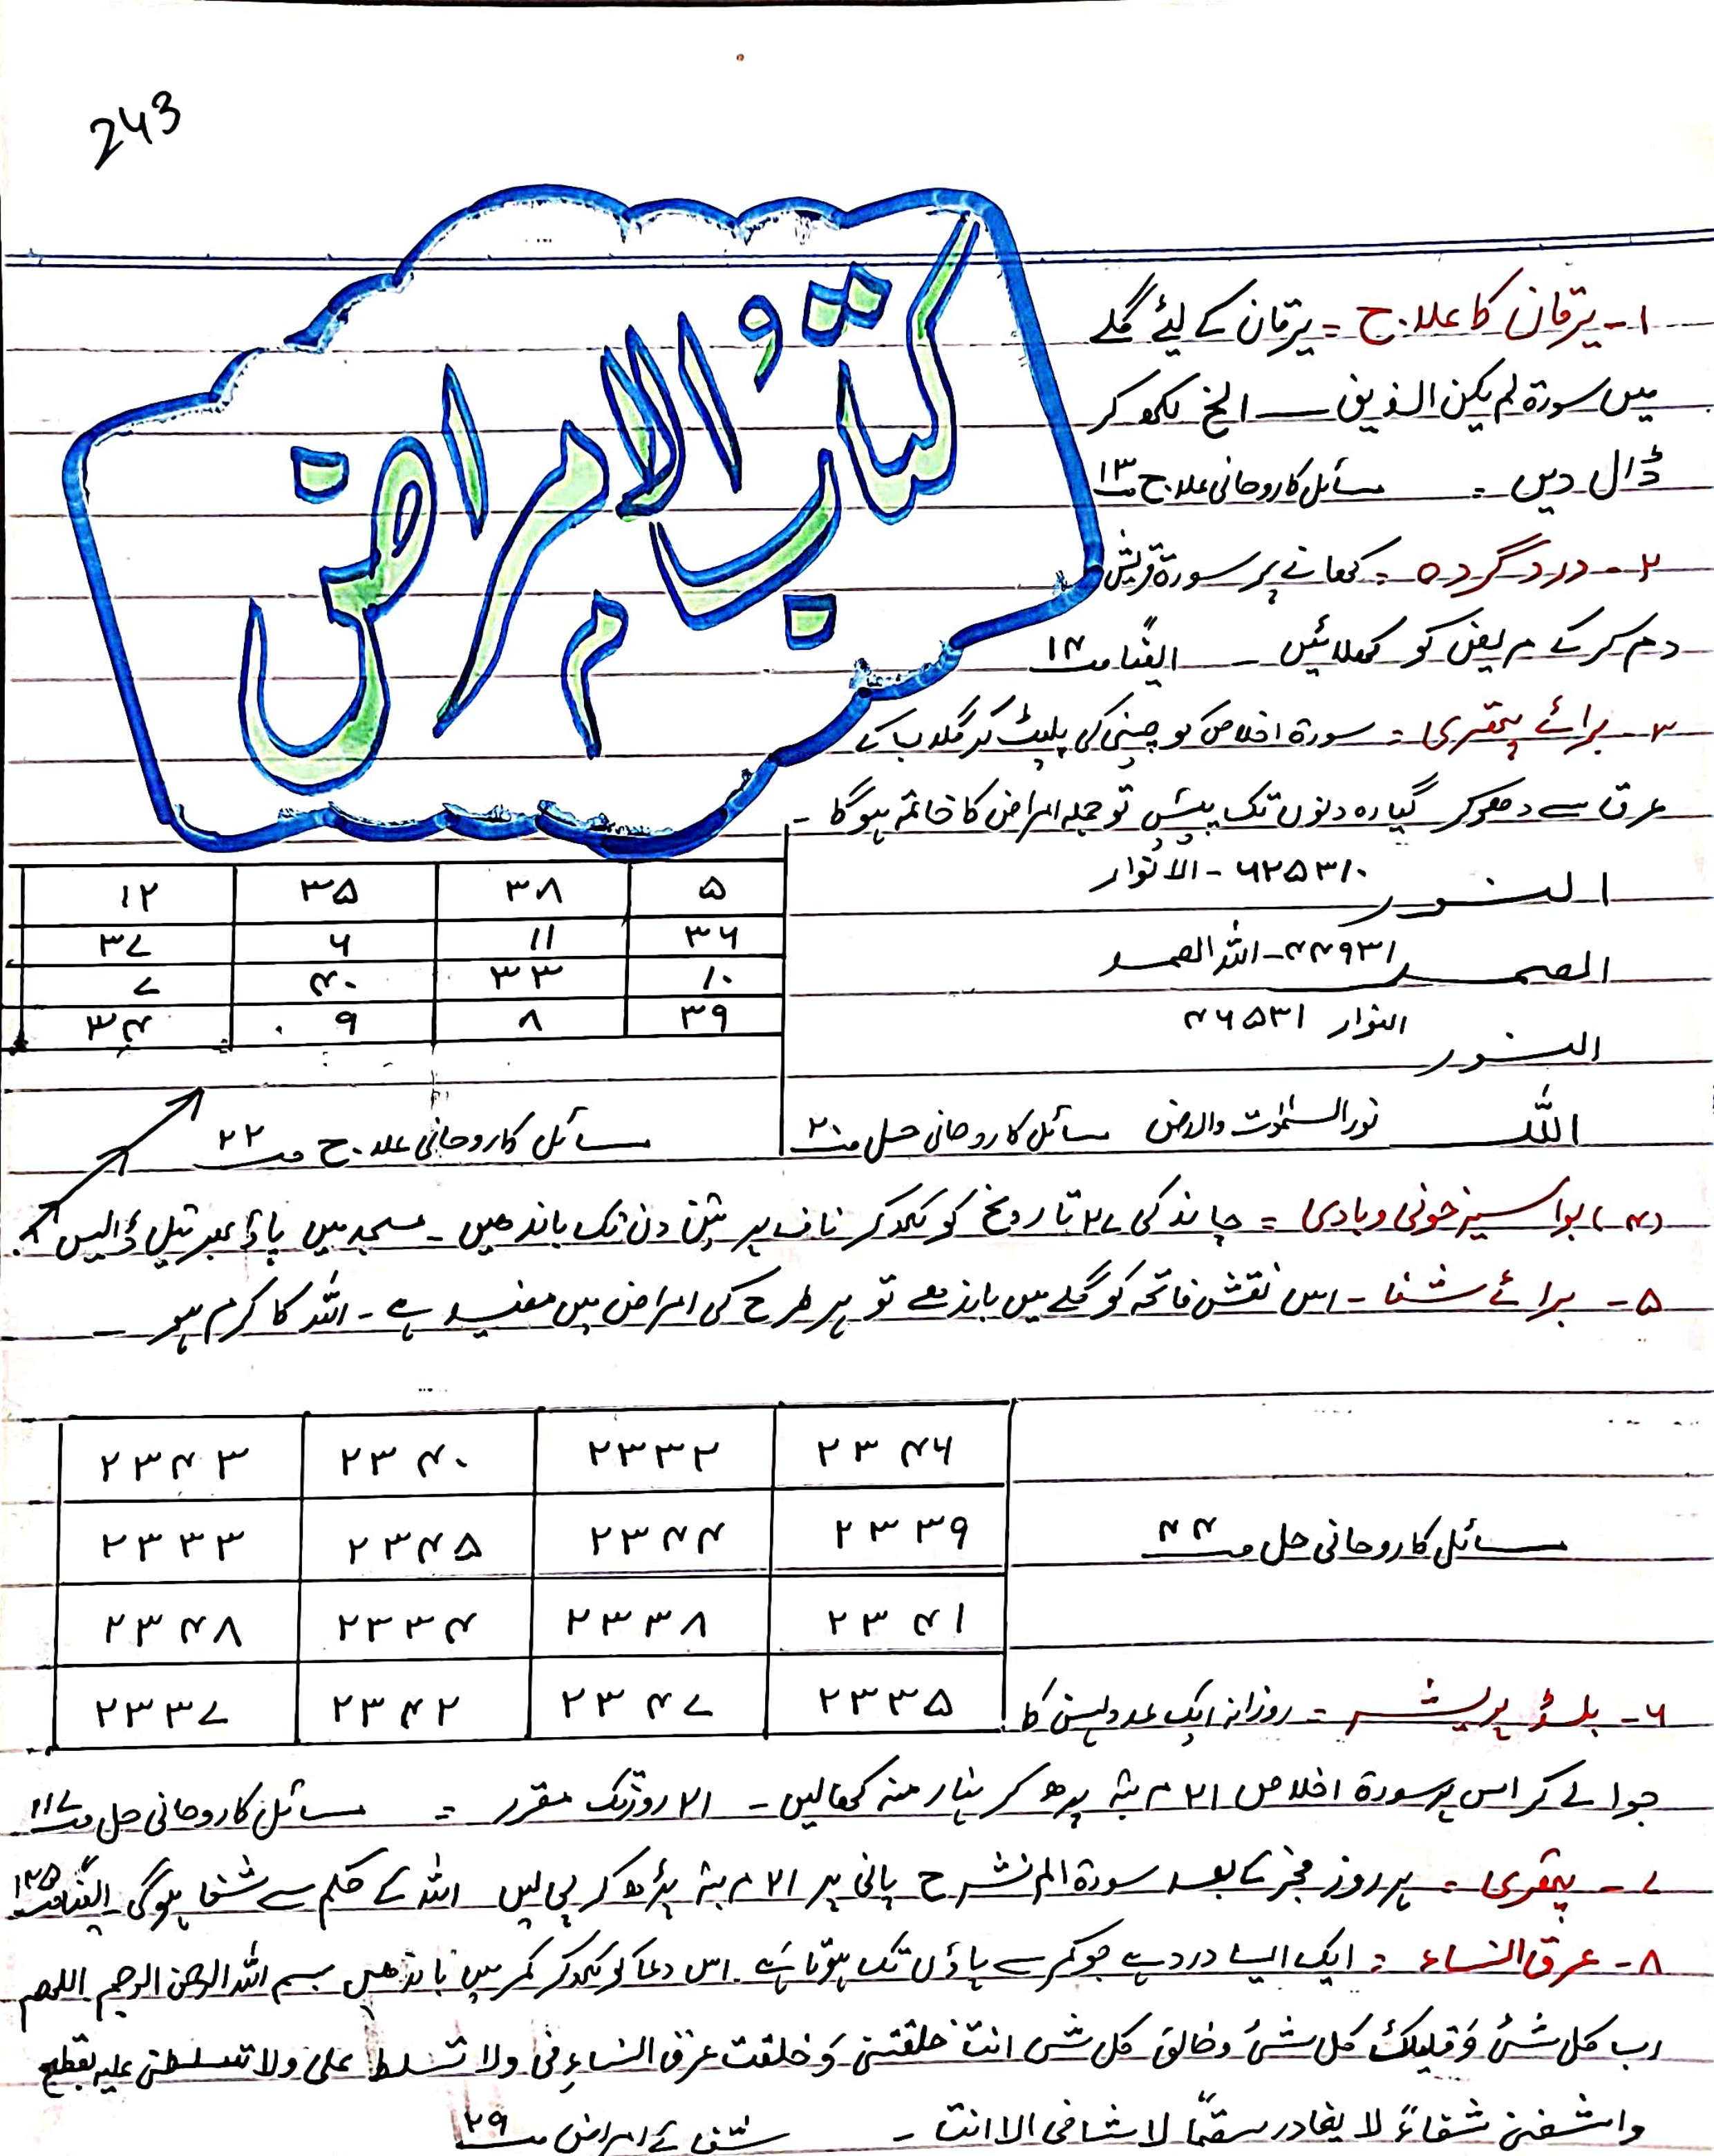 243
کتابُ الامراض
۱- یرقان کا علاج = یرقان کے لیئے گلے
میں سورۃ لم یکن الذین — الخ لکھ کر
ڈال دیں = مسائل کا روحانی علاج صـ ۱۳
۲- درد گردہ = کھانے پر سورۃ قریش
دم کر کے مریض کو کھلائیں - ایضًا صـ ۱۴
۳- برائے پتھری = سورۃ اخلاص کو چینی کی پلیٹ پر گلاب کے
عرق سے دھو کر گیارہ دنوں تک پیئیں تو جملہ امراض کا خاتمہ ہوگا -
النور ۶۲۵۳۱۰ - الانوار
الصمد ۴۴۹۳۱ - اللہ الصمد
النور النوار ۴۶۵۳۱
اللہ نور السمٰوٰت والارض مسائل کا روحانی حل صـ ۲۰
۱۲ ۳۵ ۳۸ ۵
۳۷ ۶ ۱۱ ۳۶
۷ ۴۰ ۳۳ ۱۰
۳۴ ۹ ۸ ۳۹
مسائل کا روحانی علاج صـ ۲۲
(۴) بواسیر خونی و بادی = چاند کی ۲۷ تاریخ کو لکھ کر ناف پر تین دن تک باندھیں - مسجد میں پاؤ بھر تیل ڈالیں
۵- برائے شفا - اس نقش فاتحہ کو گلے میں باندھے تو ہر طرح کی امراض میں مفید ہے - اللہ کا کرم ہو -
۲۳۴۳ ۲۳۴۰ ۲۳۳۲ ۲۳۴۶
۲۳۳۳ ۲۳۴۵ ۲۳۴۴ ۲۳۳۹
۲۳۴۸ ۲۳۳۴ ۲۳۳۸ ۲۳۴۱
۲۳۳۷ ۲۳۴۲ ۲۳۴۷ ۲۳۳۵
مسائل کا روحانی حل صـ ۴۴
۶- بلڈ پریشر = روزانہ ایک عدد لہسن کا
جوا لے کر اس پر سورۃ اخلاص ۲۱ مرتبہ پڑھ کر نہار منہ کھا لیں - ۲۱ روز تک مقرر = مسائل کا روحانی حل صـ ۱۱۷
۷- پتھری = ہر روز فجر کے بعد سورۃ الم نشرح پانی پر ۲۱ مرتبہ پڑھ کر پی لیں اللہ کے حکم سے شفا ہوگی ایضًا صـ ۱۳۵
۸- عرق النساء = ایک ایسا درد ہے جو کمر سے پاؤں تک ہوتا ہے. اس دعا کو لکھ کر کمر میں باندھیں بسم اللہ الرحمن الرحیم اللھم
رب کل شئ و ملیک کل شئ و خالق کل شئ انت خلقتنی و خلقت عرق النساء فی ولا تسلط علی ولا تسلطنی علیہ بقطع
واشفنی شفاءً لا یغادر سقمًا لا شافی الا انت - صـ ۲۹